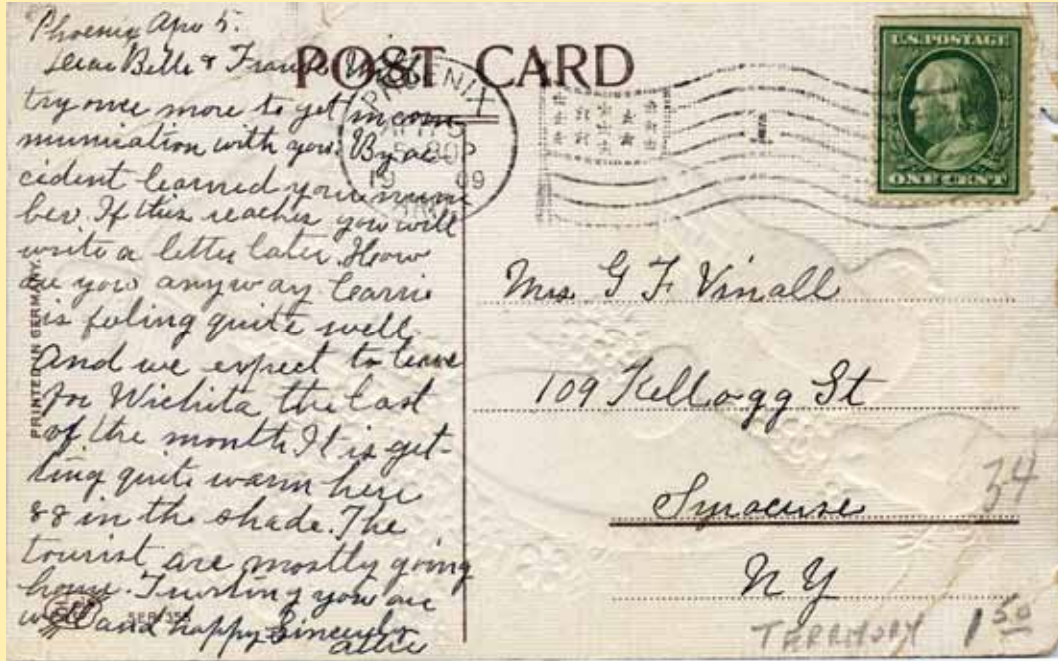 Phoenix Apr 5.
Dear Belle & Frank Will
try once more to get in com
munication with you. By ac
cident learned your num
ber. If this reaches you will
write a letter later. How
are you anyway Carrie
is feling quite well.
And we expect to leave
for Wichita the last
of the month It is get-
ting quite warm here
88 in the shade. The
tourist are mostly going
home. Trusting you are
well and happy Sincerely
Allie
POST CARD
PHOENIX
APR 5
19 09
ARIZ
U.S. POSTAGE
ONE CENT
Mrs G F Vinall
109 Kellogg St
Syracuse
N Y
34
TERRITORY 1 50
PRINTED IN GERMANY
SER/